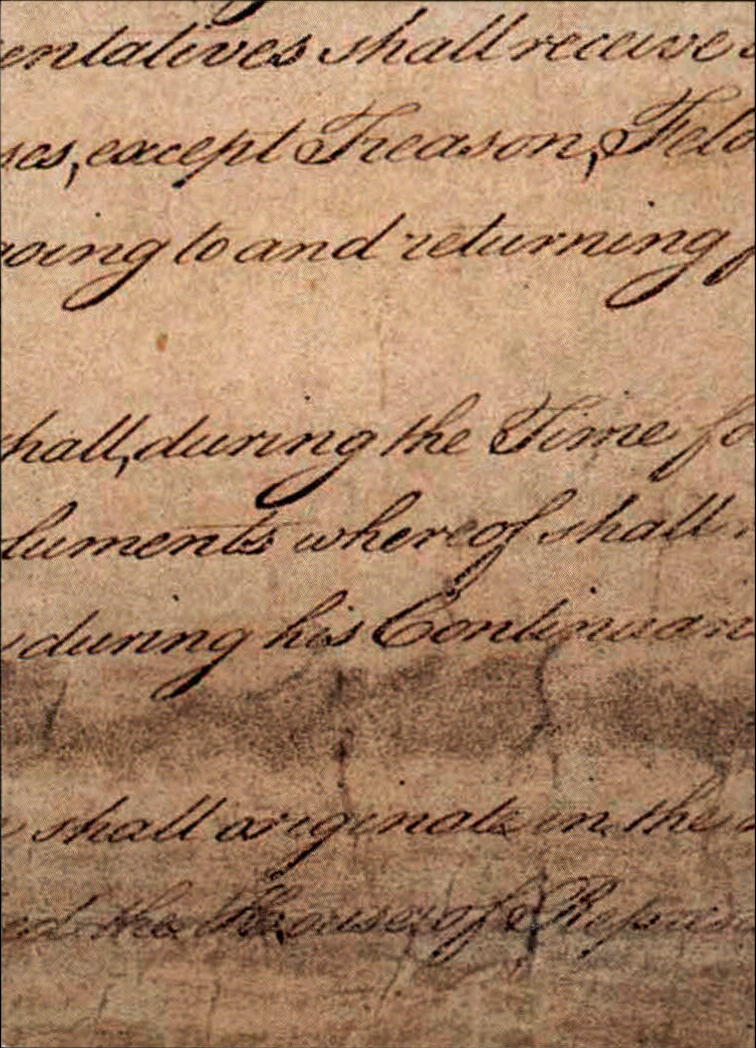 entatives shall receive
ses, except Treason, Felo
going to and returning f
shall, during the Time fo
luments whereof shall
during his Continuan
shall originate in the
ed the House of Repres